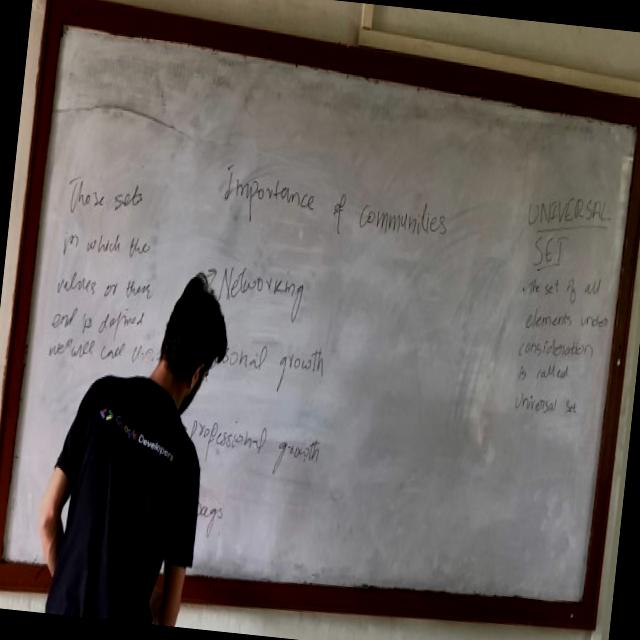 Those sets
in which the
values or their
end is defined
we will call
Importance of communities
Networking
sonal growth
professional growth
ags
UNIVERSAL
SET
the set of all
elements under
consideration
is called
Universal set
Google Developers